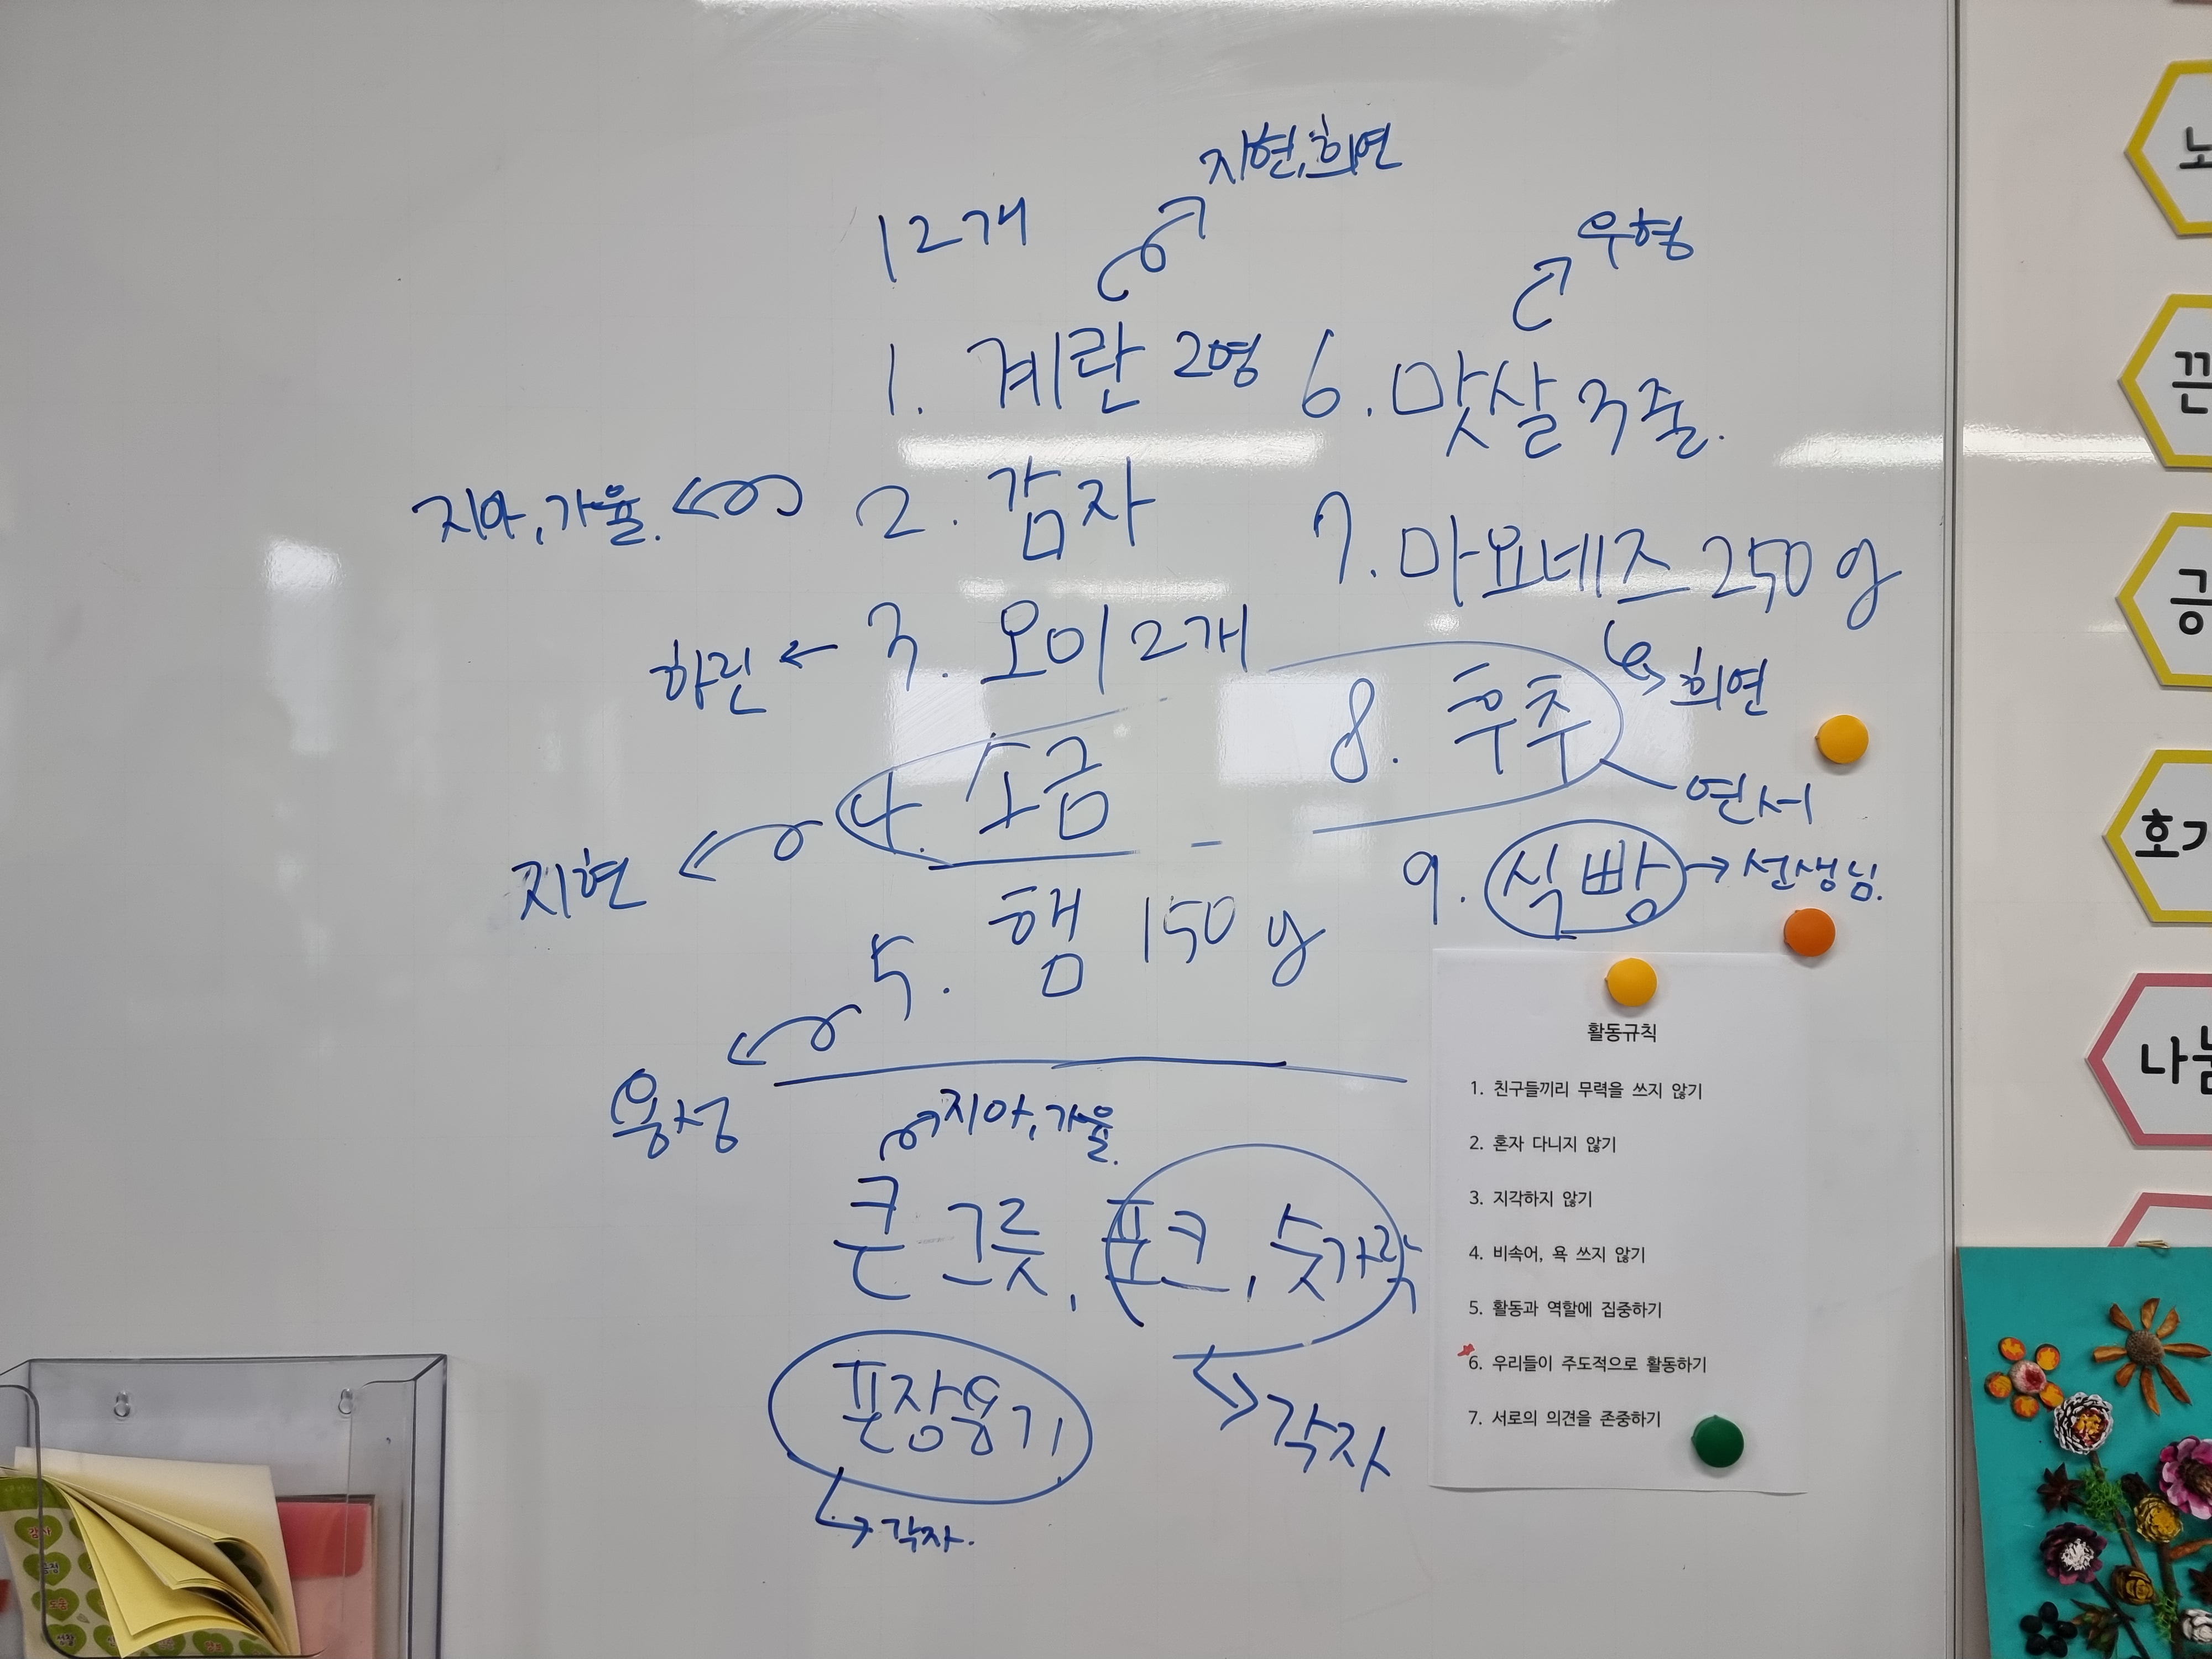 지현, 희연
12개
우형
1. 계란 2명
6. 맛살 3줄.
지아, 가율.
2. 감자
7. 마요네즈 250g
하린
3. 오이 2개
희연
8. 후추
4. 소금
연서
지현
9. 식빵
선생님.
5. 햄 150g
용성
지아, 가율.
큰 그릇, 포크, 숟가락
포장용기
각자
각자.
활동규칙
1. 친구들끼리 무력을 쓰지 않기
2. 혼자 다니지 않기
3. 지각하지 않기
4. 비속어, 욕 쓰지 않기
5. 활동과 역할에 집중하기
6. 우리들이 주도적으로 활동하기
7. 서로의 의견을 존중하기
끈
긍
호기
나눔